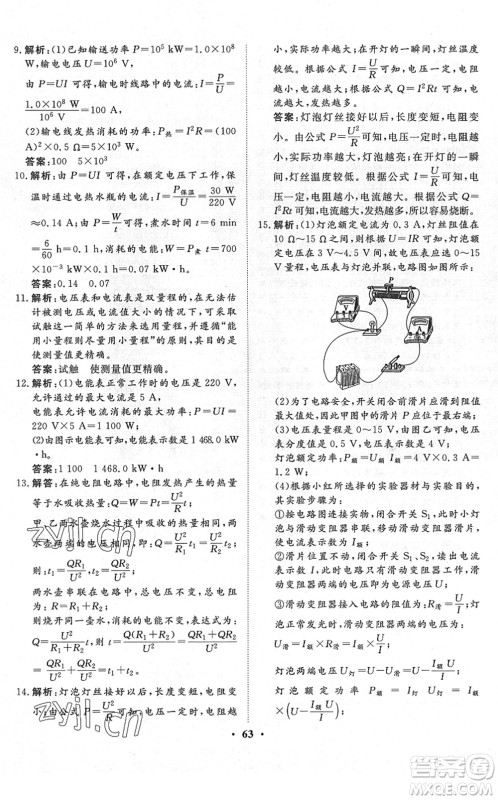 9. 解析:(1)已知输送功率 P=10⁵ kW=1.0×10⁸
W,输电电压 U=10⁶ V,
由 P=UI 可得,输电时线路中的电流:I=P/U=
1.0×10⁸ W/10⁶ V=100 A,
(2)输电线发热消耗的功率:P=I²R=(100
A)²×0.5 Ω=5×10³ W。
答案:100 5×10³
10. 解析:由 P=UI 可得,在额定电压下工作,保
温时通过电热水瓶的电流:I=P保温/U=30 W/220 V
≈0.14 A;由 P=W/t 可得,煮水时间 t=6 min
=6/60 h=0.1 h,消耗的电能:W=P煮 t=0.7 kW
×0.1 h=0.07 kW·h。
答案:0.14 0.07
11. 解析:电压表和电流表是双量程的,在无法估
计被测电压或电流值大小的情况下,可采用
试触这一简单的方法来选择量程。“能用
小量程则尽量用小量程”是选择电表量程的
原则,其目的是使测量值更精确。
答案:试触 使测量值更精确。
12. 解析:(1)电能表正常工作时的电压是 220 V,
允许通过的最大电流为 5 A,
电能表允许的最大功率:P=UI=220 V×
5 A=1 100 W。
(2)由图示电能表可知,其示数为 1 468.0 kW
·h。
答案:1 100 1 468.0 kW·h
13. 解析:在纯电阻电路中,电阻发热产生的热量
等于水吸收热量:Q=W=Pt=U²/R t,
甲、乙两水壶烧同一壶水,消耗的电能相等,
两水壶两端电压相等,Q=W=U²/R₁ t₁=U²/R₂ t₂,
则:t₁=QR₁/U²,t₂=QR₂/U²,
两水壶串联,总电压不变,总电阻变大,为
R=R₁+R₂;
烧开同一壶水,消耗的电能不变,表达式为:
Q=U²/(R₁+R₂) t,则 t=Q(R₁+R₂)/U²=(QR₁+QR₂)/U²
=QR₁/U²+QR₂/U²=t₁+t₂。
14. 解析:灯泡灯丝接好以后,长度变短,电阻变
小,由公式 P=U²/R 可知,电压一定时,电阻越
小,功率越大,灯泡越亮;由公式 I=U/R 可知,电
压一定时,电阻越小,电流越大;根据公式 Q=
I²Rt 可知,电流越大,产生的热量越多,实际
功率越大;在开灯的一瞬间,灯丝温度较低,灯丝
温度较低。根据公式 I=U/R 可知,电压一定,电阻越
小,电流越大;根据公式 Q=I²Rt 可知,电流
越大,发热越多,所以越容易烧断。
答案:灯泡灯丝接好以后,长度变短,电阻变
小,由公式 P=U²/R 可知,电压一定时,电阻越
小,功率越大,灯泡越亮;在开灯的一瞬间,灯
丝温度较低,电阻较小,根据公式 I=U/R 可知,
电压一定,电阻越小,电流越大;根据公式 Q=
I²Rt 可知,电流越大,发热越多,所以越易烧断。
15. 解析:(1)灯泡额定电流为 0.3 A,灯丝电阻在
10 Ω~15 Ω 之间,由 I=U/R 可知,灯泡额定电压
范围为 3 V~4.5 V,电压表量程应选 0~15
V,电压表与灯泡并联,如图所示。
P
(2)为了电路安全,开关闭合前滑片应滑到阻
值最大处,因此甲图中的滑片 P 应位于右端。
(3)电压表量程为 0~15 V,由图乙可知,电压
表分度值是 0.5 V,电压表示数为 4.5 V。
(4)根据小红所选择的实验器材与实验方法,
具体实验步骤如下:
①按电路图连接实物,闭合开关前,滑片位于
滑动变阻器阻值最大处,闭合开关 S₁,灯泡与
滑动变阻器串联,移动滑动变阻器滑片,使电
流表示数为 I额;
②滑片位置不动,闭合开关 S₁、S₂,读出电流
表示数为 I,此时灯泡短路,电路电流为 I,
滑动变阻器两端的电压为 U;
③滑动变阻器接入电路的阻值 R滑=U/I,灯泡
额定电流为 I额,滑动变阻器两端的电压:
U滑=I额 R滑=I额×U/I,
灯泡两端电压 U灯=U-U滑=U-I额×U/I,
灯泡额定功率 P额=I额 U灯=I额
×(U-I额 U/I);
63